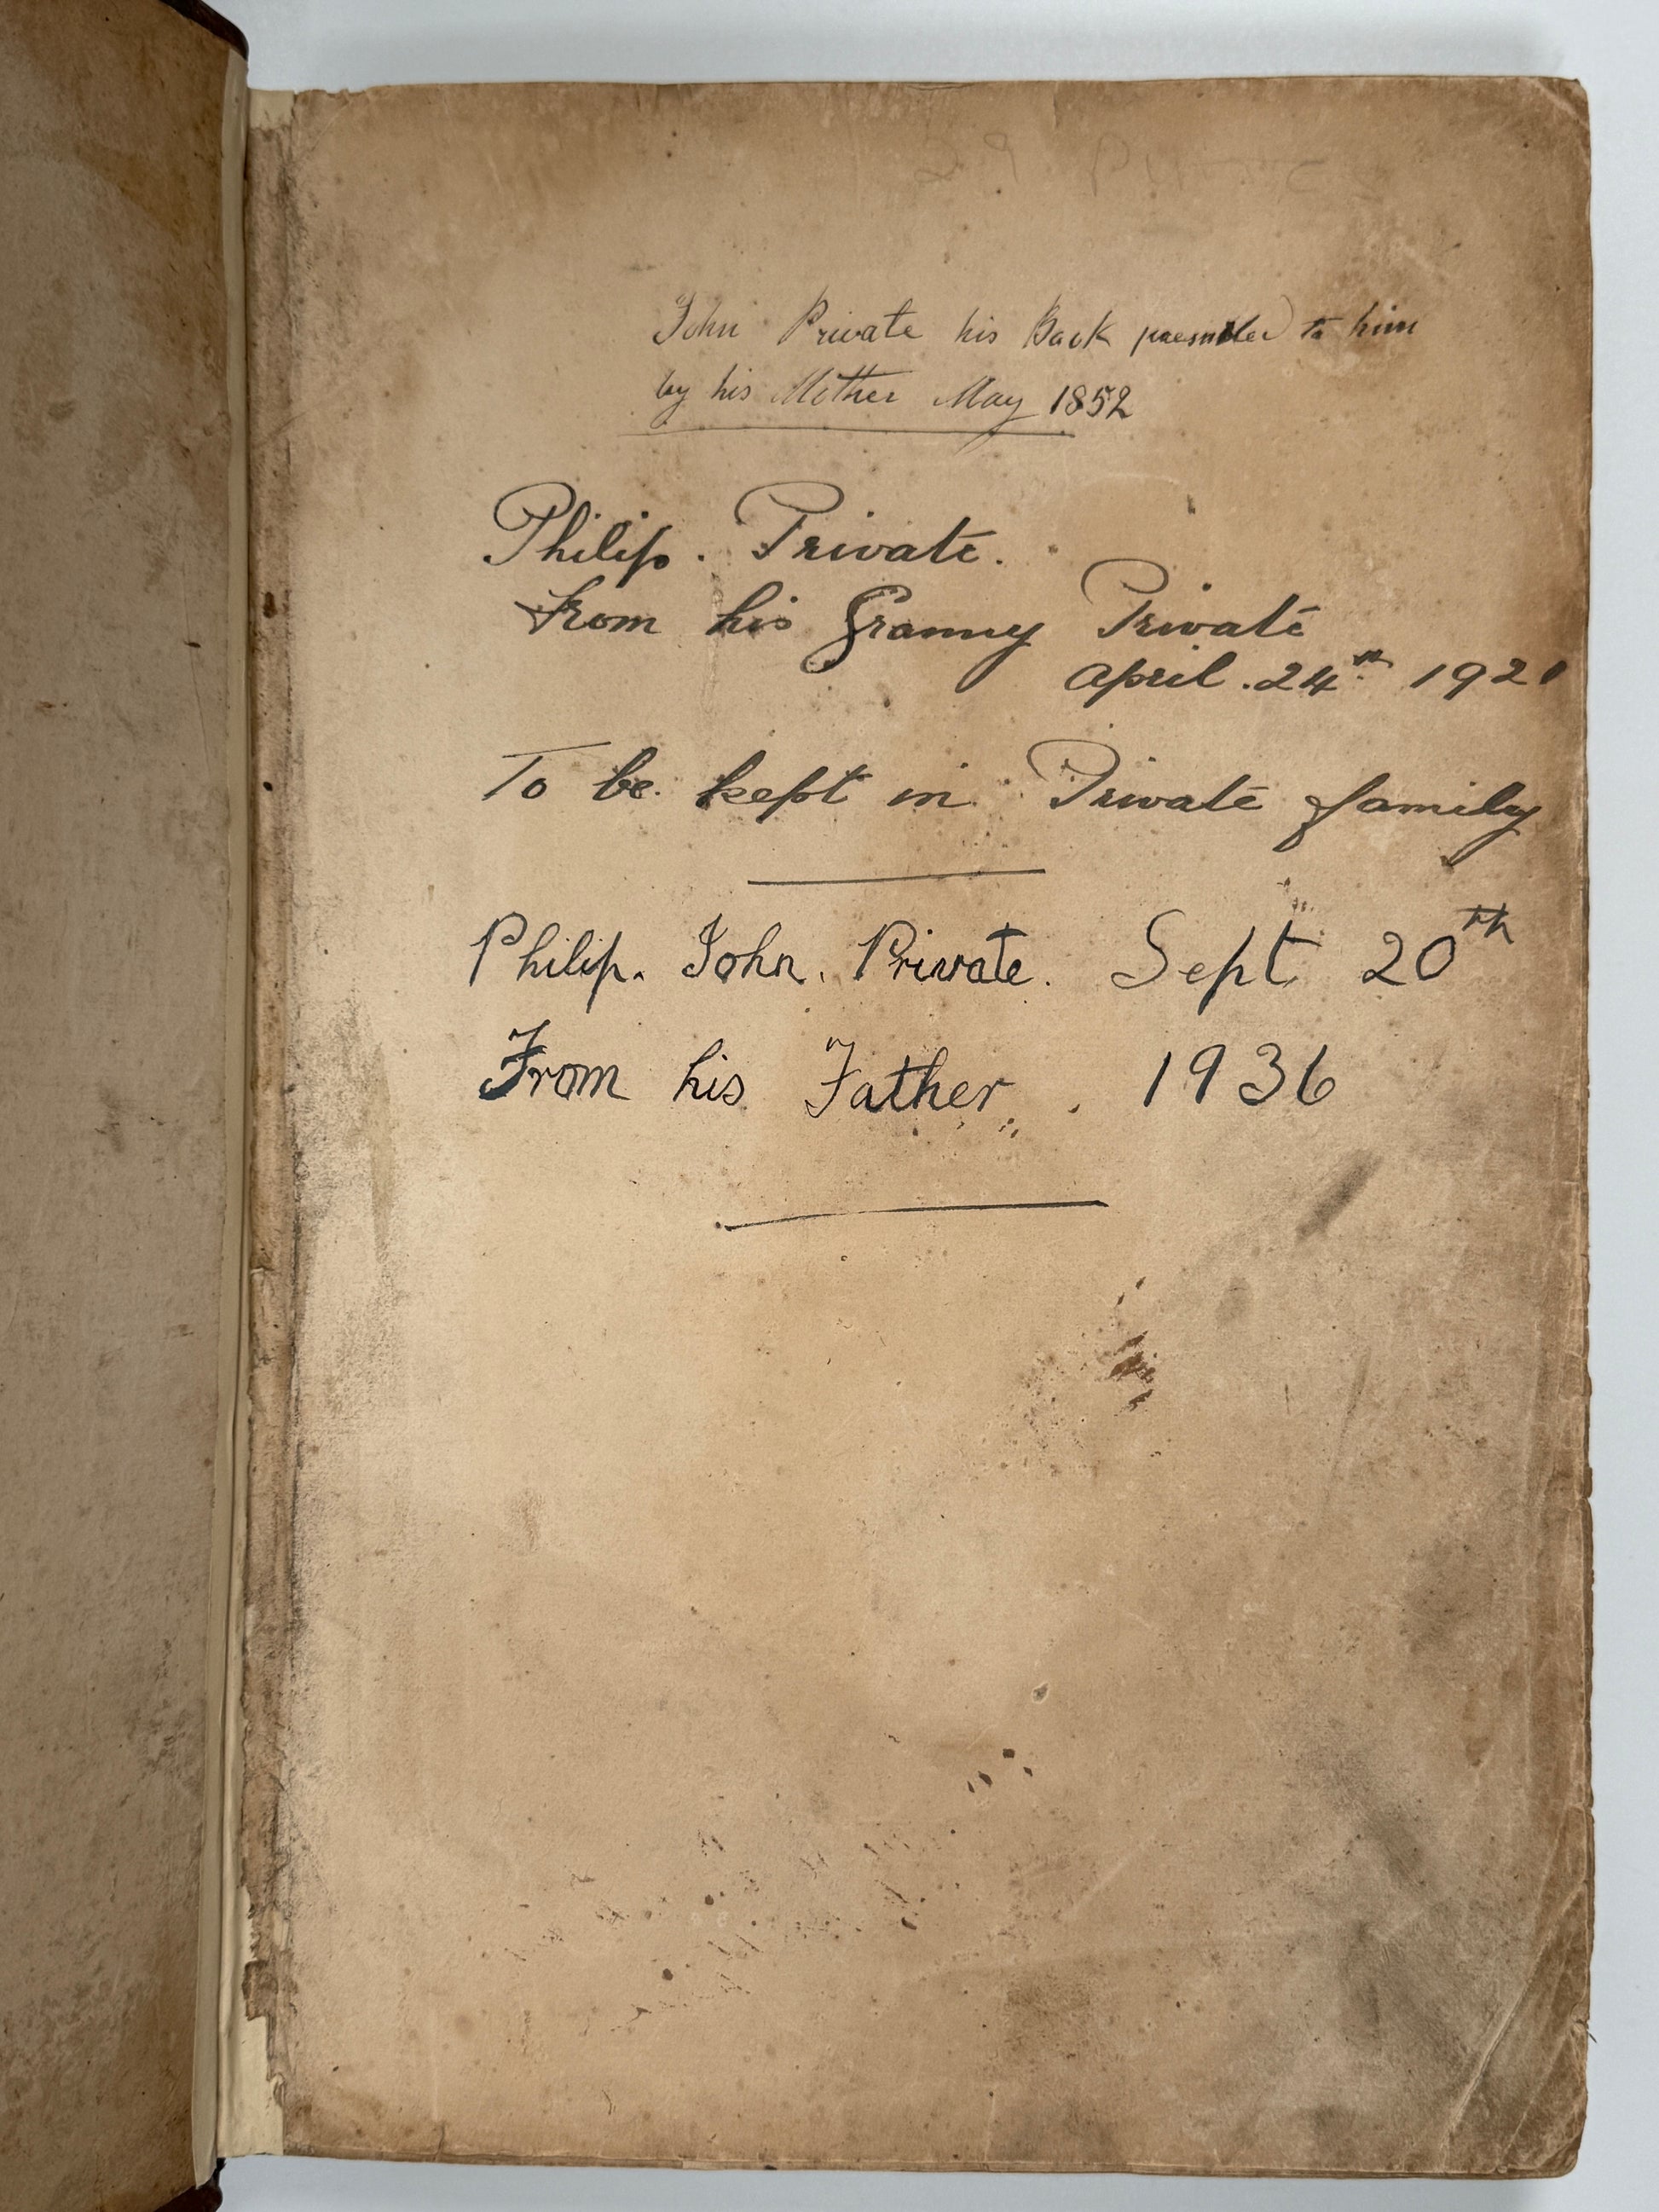 John Private his Book presented to him
by his Mother May 1852
Philip. Private.
From his Granny Private
April. 24th 1921
To be kept in Private family
Philip. John. Private. Sept 20th
From his Father. 1936